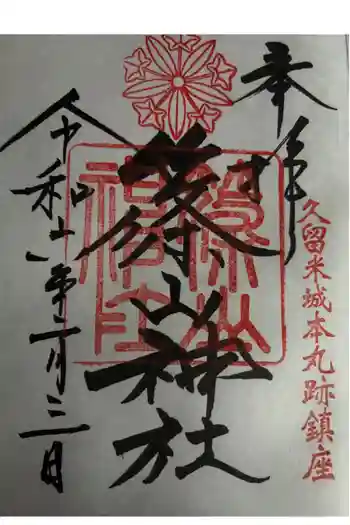 奉拝
久留米城本丸跡鎮座
篠山神社
篠山
神社
令和六年一月三日